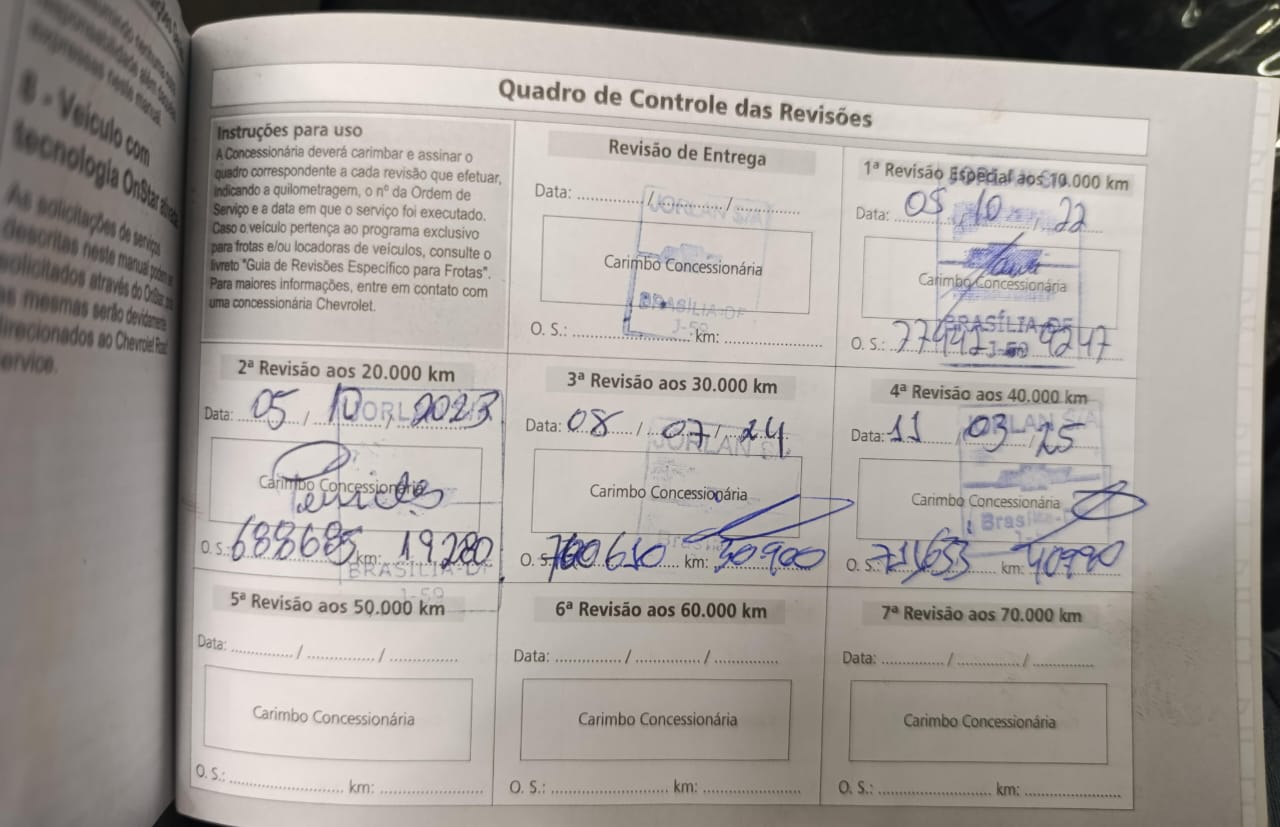 8 - Veículo com
tecnologia OnStar
As solicitações de serviços
descritas neste manual podem
solicitados através do OnStar
as mesmas serão devidamente
direcionados ao Chevrolet Road
Service.
Quadro de Controle das Revisões
Instruções para uso
A Concessionária deverá carimbar e assinar o
quadro correspondente a cada revisão que efetuar,
indicando a quilometragem, o nº da Ordem de
Serviço e a data em que o serviço foi executado.
Caso o veículo pertença ao programa exclusivo
para frotas e/ou locadoras de veículos, consulte o
livreto "Guia de Revisões Específico para Frotas".
Para maiores informações, entre em contato com
uma concessionária Chevrolet.
Revisão de Entrega
Data: ............... / ............... / ...............
JORLAN S/A
Carimbo Concessionária
BRASÍLIA-DF
J-59
O. S.: ............... km: ...............
1ª Revisão Especial aos 10.000 km
Data: 05 / 10 / 22
Carimbo Concessionária
BRASÍLIA-DF
J-59
O. S.: 9247
2ª Revisão aos 20.000 km
Data: 05 / 10 / 2023
JORLAN
Carimbo Concessionária
O. S.: 688685 km: 19280
BRASÍLIA-DF
J-59
3ª Revisão aos 30.000 km
Data: 08 / 07 / 24
JORLAN S
Carimbo Concessionária
Brasília
O. S.: 700610 km: 30900
4ª Revisão aos 40.000 km
JORLAN S/A
Data: 11 / 03 / 25
Carimbo Concessionária
Brasíl
O. S.: km: 40990
5ª Revisão aos 50.000 km
Data: ............... / ............... / ...............
Carimbo Concessionária
O. S.: ............... km: ...............
6ª Revisão aos 60.000 km
Data: ............... / ............... / ...............
Carimbo Concessionária
O. S.: ............... km: ...............
7ª Revisão aos 70.000 km
Data: ............... / ............... / ...............
Carimbo Concessionária
O. S.: ............... km: ...............